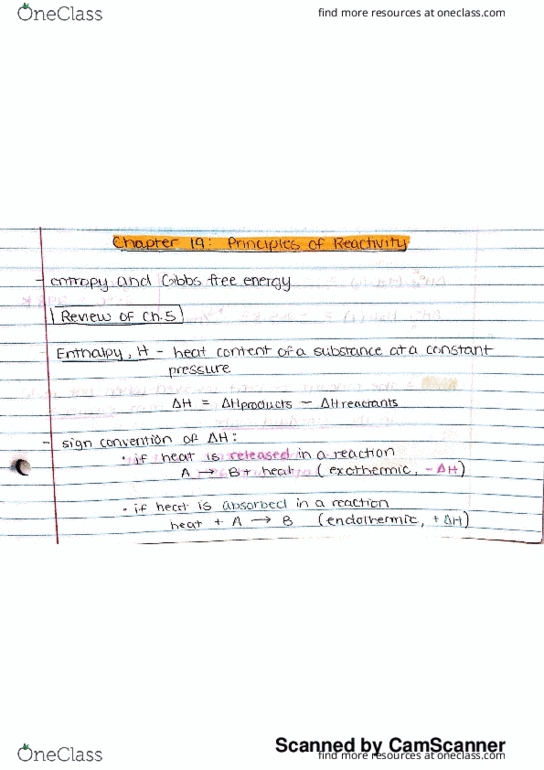 OneClass
find more resources at oneclass.com
Chapter 19: Principles of Reactivity
- entropy and Gibbs free energy
Review of ch.5
- Enthalpy, H - heat content of a substance at a constant
pressure
ΔH = ΔHproducts - ΔHreactants
- sign convention of ΔH:
• if heat is released in a reaction
A → B + heat (exothermic, -ΔH)
• if heat is absorbed in a reaction
heat + A → B (endothermic, +ΔH)
Scanned by CamScanner
OneClass
find more resources at oneclass.com